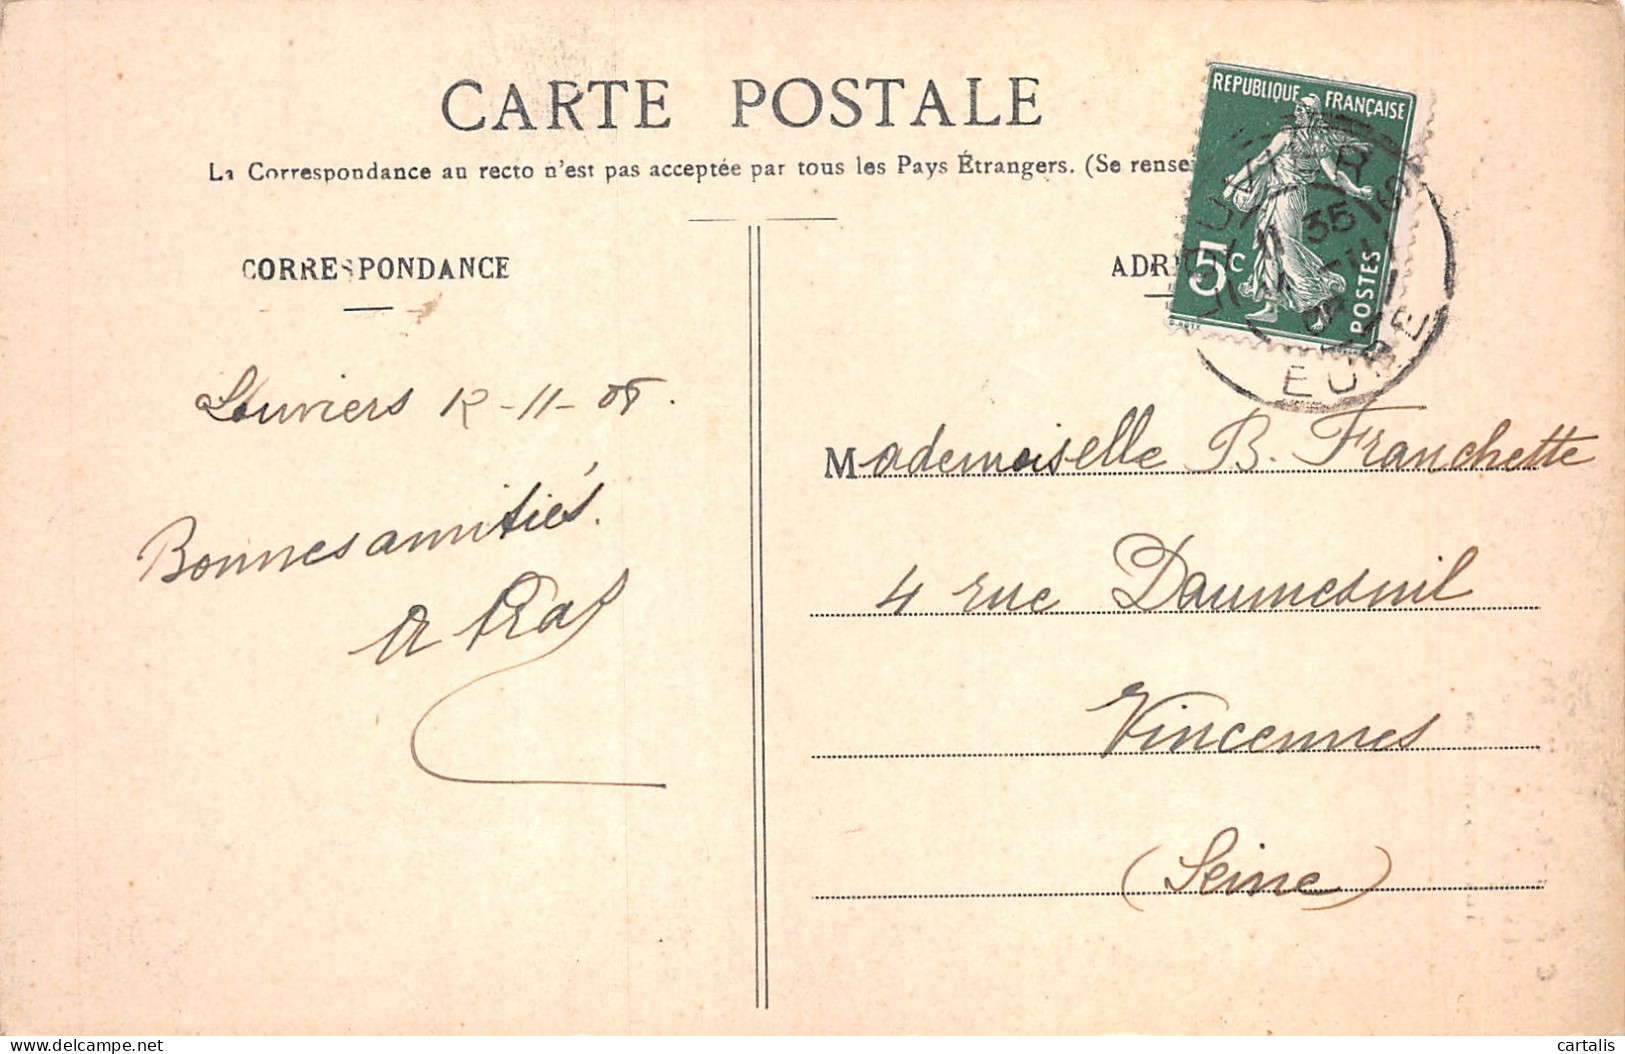 CARTE POSTALE
La Correspondance au recto n'est pas acceptée par tous les Pays Étrangers. (Se rensei
REPUBLIQUE FRANÇAISE
5c
POSTES
EURE
CORRESPONDANCE
ADR
Louviers 12-11-08.
Bonnes amitiés.
Mademoiselle B. Franchette
4 rue Daumesnil
Vincennes
(Seine)
delcampe.net
cartalis